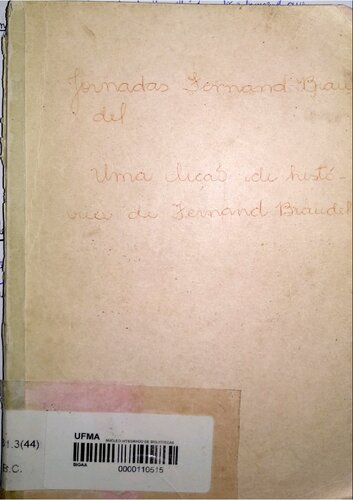 Jornadas Fernand Brau
del
Uma lição de histó-
rica de Fernand Braudel
31.3(44)
B.C.
UFMA
NÚCLEO INTEGRADO DE BIBLIOTECAS
SIGAA
0000110515